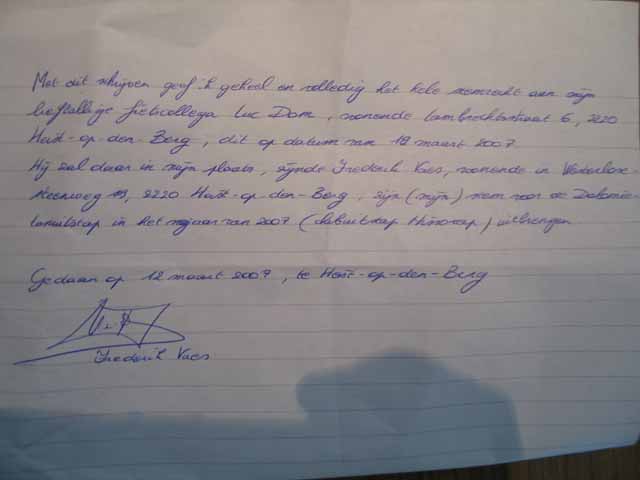 Met dit schrijven geef ik geheel en volledig het hele stemrecht aan mijn
lieftallige fietscollega Luc Dom, wonende Lambrechtsstraat 6, 2220
Heist-op-den-Berg, dit op datum van 18 maart 2007.
Hij zal daar in mijn plaats, zijnde Frederik Vaes, wonende in
steenweg, 2220 Heist-op-den-Berg, zijn (mijn) stem voor de
in het najaar van 2007 uitbrengen
Gedaan op 12 maart 2007, te Heist-op-den-Berg
Frederik Vaes